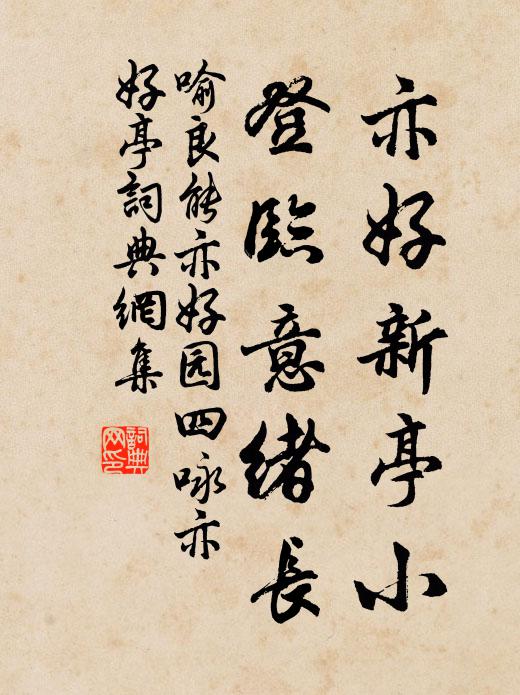 亦好新亭小
登臨意緒長
喻良能亦好园四咏亦
好亭詞典網集
詞典
网印